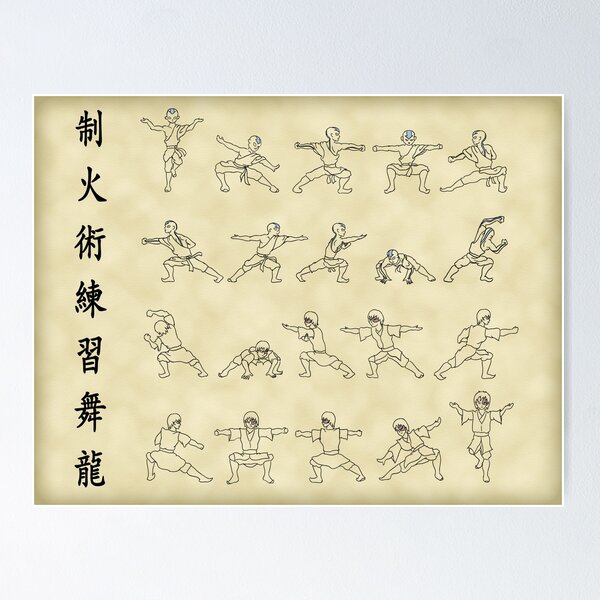 制火術練習舞龍